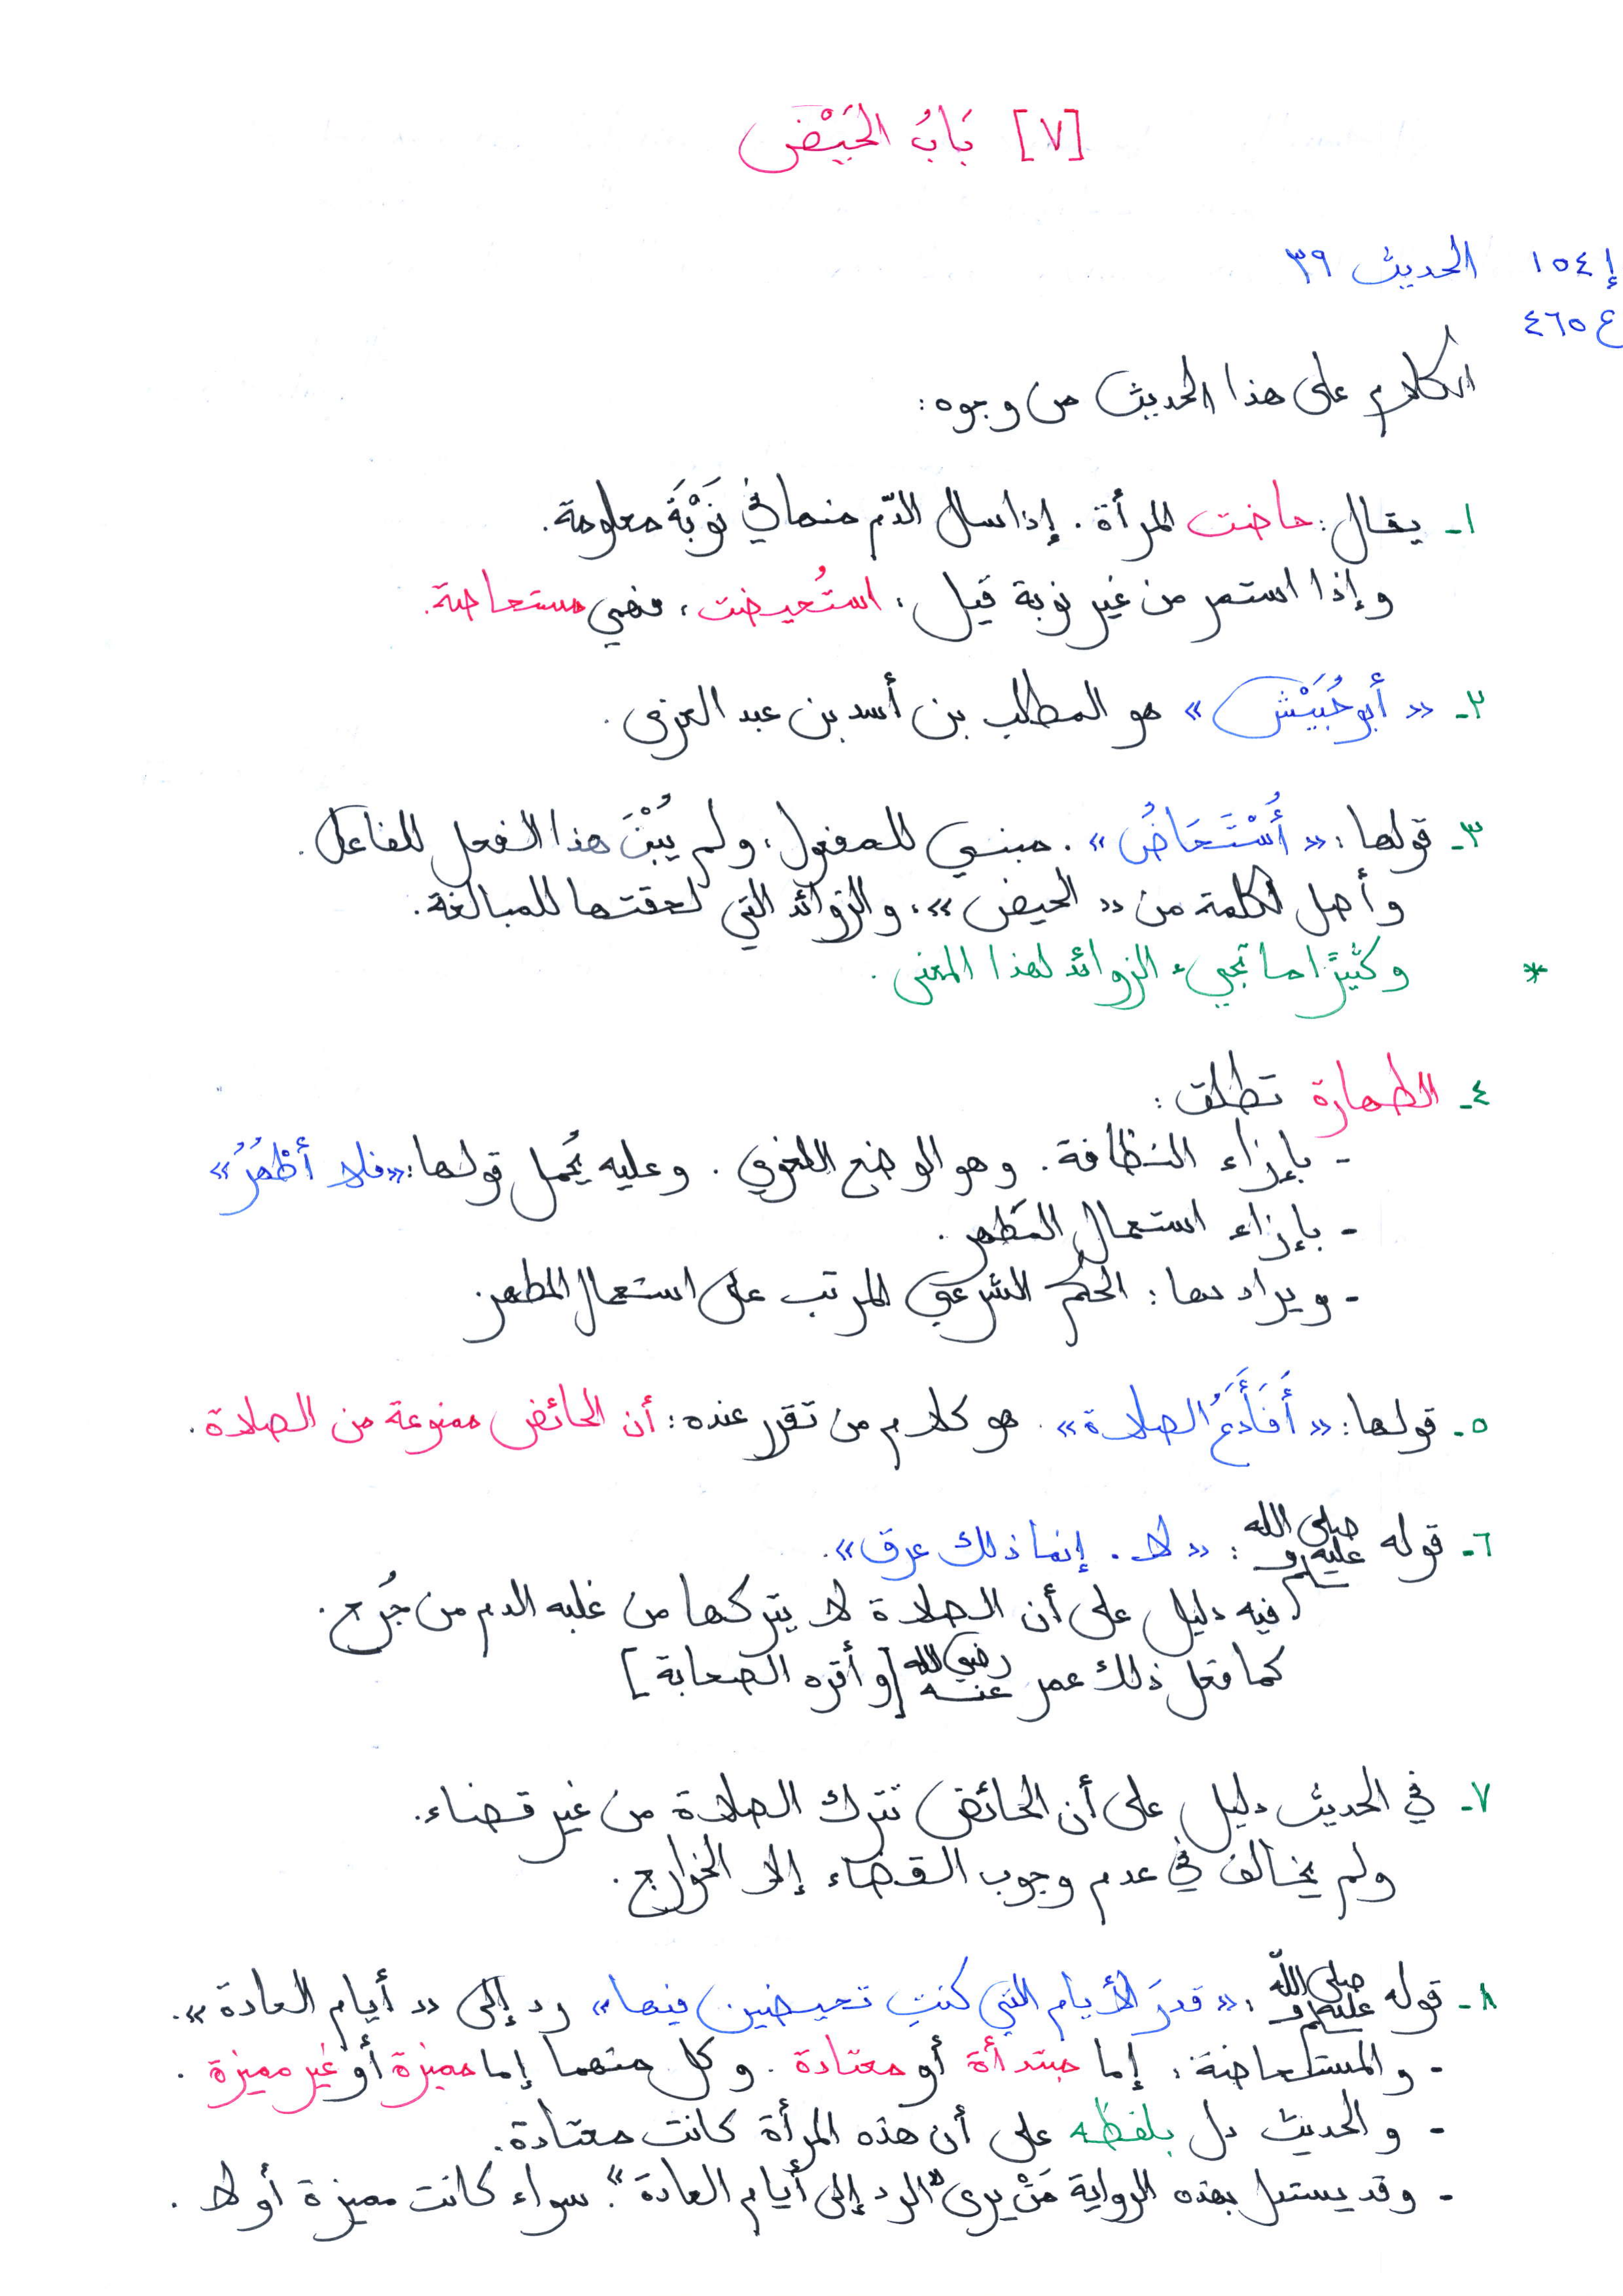 [٧] بَابُ الحَيْضِ
إ ١٥٤ الحديث ٣٩
ع ٤٦٥
الكلام على هذا الحديث من وجوه:
١- يقال: حاضت المرأة. إذا سال الدّم منها في نَوْبَةٍ معلومة.
وإذا استمر من غير نوبة قيل: استُحيضت، فهي مستحاضة.
٢- «أبو حُبَيْش» هو المطلب بن أسد بن عبد العزى.
٣- قولها: «أُسْتَحَاضُ». مبني للمفعول، ولم يُبْنَ هذا الفعل للفاعل.
وأصل الكلمة من «الحيض»، والزوائد التي لحقتها للمبالغة.
* وكثيرًا ما تجيء الزوائد لهذا المعنى.
٤- الطهارة تطلق:
- بإزاء النظافة. وهو الوضع اللغوي. وعليه يُحمل قولها: «فلا أَطْهُرُ»
- بإزاء استعمال المُطَهر.
- ويراد بها: الحكم الشرعي المرتب على استعمال المطهر.
٥- قولها: «أَفَأَدَعُ الصلاة». هو كلام من تقرر عنده: أن الحائض ممنوعة من الصلاة.
٦- قوله صلى الله عليه وسلم: «لا. إنما ذلك عرق».
فيه دليل على أن الصلاة لا يتركها من غلبه الدم من جُرح.
كما فعل ذلك عمر رضي الله عنه [وأقره الصحابة]
٧- في الحديث دليل على أن الحائض تترك الصلاة من غير قضاء.
ولم يخالف في عدم وجوب القضاء إلا الخوارج.
٨- قوله صلى الله عليه وسلم: «قدرَ الأيام التي كنتِ تحيضين فيها» رد إلى «أيام العادة».
- والمستحاضة: إما مبتدأة أو معتادة. وكل منهما إما مميزة أو غير مميزة.
- والحديث دل بلفظه على أن هذه المرأة كانت معتادة.
- وقد يستدل بهذه الرواية مَنْ يرى "الرد إلى أيام العادة". سواء كانت مميزة أو لا.